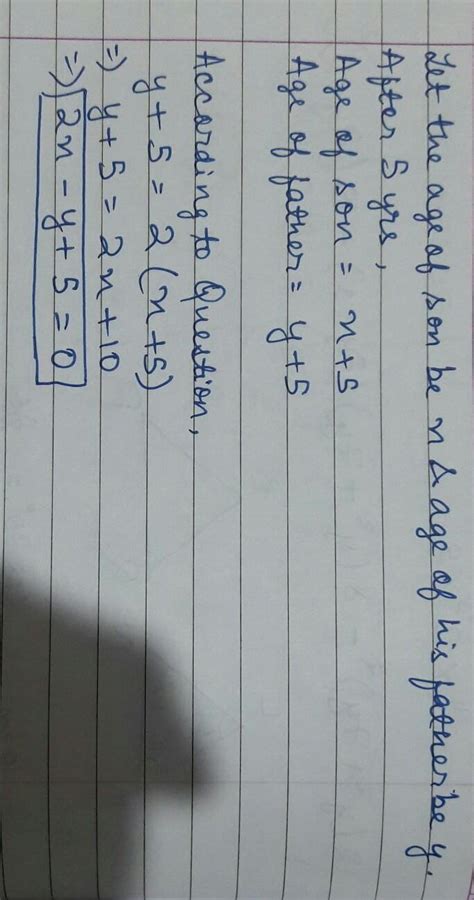 Let the age of son be x & age of his father be y.
After 5 yrs,
Age of son = x+5
Age of father = y+5
According to Question,
y + 5 = 2 (x+5)
=) y + 5 = 2x + 10
=) 2x - y + 5 = 0